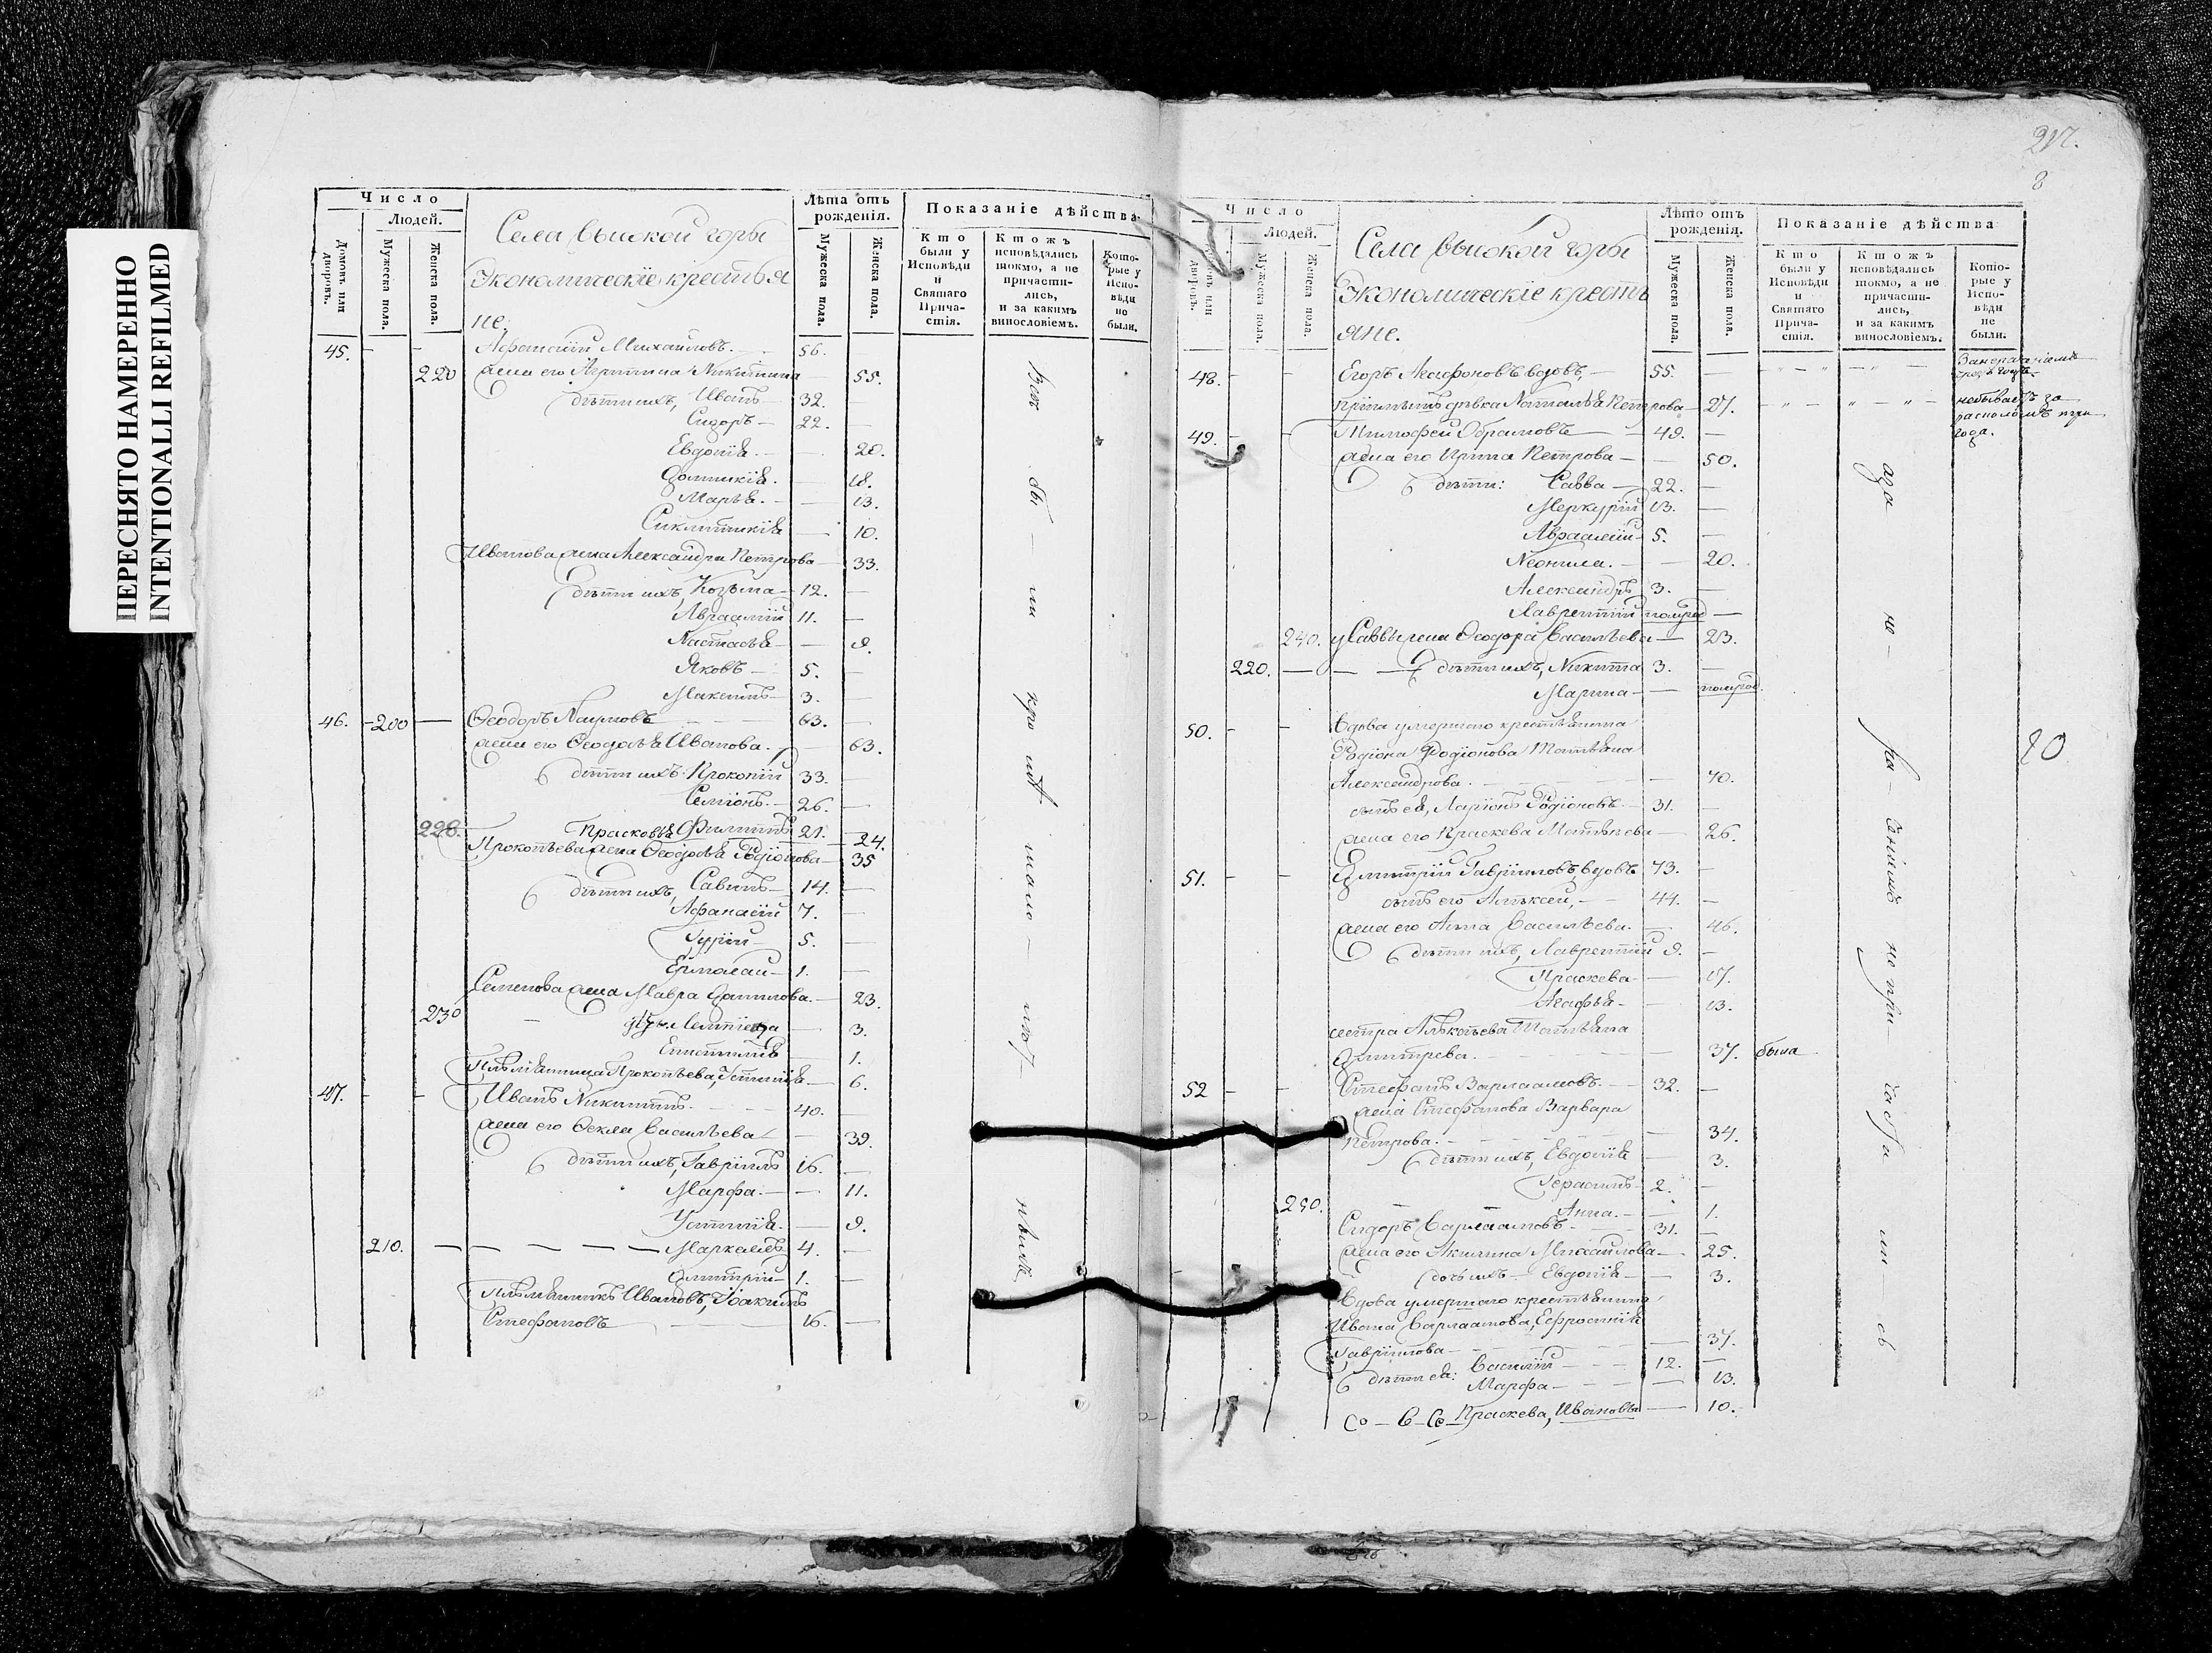 ПЕРЕСНЯТО НАМЕРЕННО
INTENTIONALLI REFILMED
Число
Людей.
Домовъ или дворовъ.
Мужеска пола.
Женска пола.
Села высокой горы
Экономическіе крестья
не.
Лѣта отъ рожденія.
Мужеска пола.
Женска пола.
Показаніе дѣйства
Кто были у Исповѣди и Святаго Прича- стія.
Ктожъ исповѣдались токмо, а не причасти- лись, и за какимъ винословіемъ.
Кото- рые у Испо- вѣди не были.
45. - - Афанасій Михайловъ. 56.
220 жена его Агрипина Никитина 55.
дѣти ихъ, Иванъ 32.
Сидоръ 22.
Евдокія. 20.
Домникія. 18.
Марья. 13.
Сиклитикія 10.
Иванова жена Александра Петрова 33.
дѣти ихъ, Козьма 12.
Авраамій 11.
Настасья 9.
Яковъ 5.
Максимъ 3.
46. 200 Ѳеодоръ Наумовъ 63.
жена его Ѳеодосья Иванова. 63.
дѣти ихъ Прокопій 33.
Семіонъ. 26.
Филиппъ 21.
Прасковья 24.
Прокопьева жена Ѳеодосья Родіонова 35
дѣти ихъ, Савинъ 14.
Афанасій 7.
Гурій 5.
Ермолай 1.
Семенова жена Мавра Данилова. 23.
230 3.
1.
Племянница Прокопьева, Устинія 6.
47. - - Иванъ Никитинъ. 40.
жена его Ѳекла Васильева 39.
дѣти ихъ, Гавріилъ 16.
Марфа. 11.
Устинія. 9.
210. Маркеллъ 4.
Дмитрій 1.
Племянникъ Ивановъ, Іоакимъ
Стефановъ 16.
217.
8
Число
Людей.
Мужеска пола.
Женска пола.
Села высокой горы
Экономическіе кресть
яне.
Лѣто отъ рожденія.
Мужеска пола.
Женска пола.
Показаніе дѣйства
Кто были у Исповѣди и Святаго Прича- стія.
Ктожъ исповѣдались токмо, а не причасти- лись, и за какимъ винословіемъ.
Кото- рые у Испо- вѣди не были.
48. - - Егоръ Агафоновъ вдовъ, 55.
дѣвка Наталья Петрова 27. небываетъ за
расколомъ три
года.
49. - - Тимофей Абрамовъ 49.
жена его Ирина Петрова 50.
дѣти: Савва 22.
Меркурій 13.
Авраамій 5.
Неонила. 20.
Александръ 3.
Лаврентій полгод
240. у Саввы жена Ѳеодора Васильева 23.
220. дѣти ихъ, Никита 3.
Марина полгод.
50. - - Вдова умершаго крестьянина
Родіона Родіонова Татьяна
Александрова. 70.
сынъ ея, Ларіонъ Родіоновъ 31.
жена его Праскева Матвѣева 26.
51. - - Дмитрій Гавриловъ, вдовъ 73.
сынъ его Алѣксей, 44.
жена его Анна Васильева. 46.
дѣти ихъ, Лаврентій 9.
Праскева 17.
Агафья 13.
сестра Татьяна
Дмитрева. 37. была
52 - - Стефанъ Варлаамовъ. 32.
жена Стефанова Варвара
Петрова. 34.
дѣти ихъ, Евдокія 3.
Герасимъ 2.
250. Анна. 1.
Сидоръ Варлаамовъ 31.
жена его Акилина Михайлова 25.
дочь ихъ Евдокія 3.
Вдова умершаго крестьянина
Ивана Варлаамова, Ефросинія
Гаврилова 37.
дѣти ея: Василій 12.
Марфа 13.
Праскева, Ивановы 10.
20